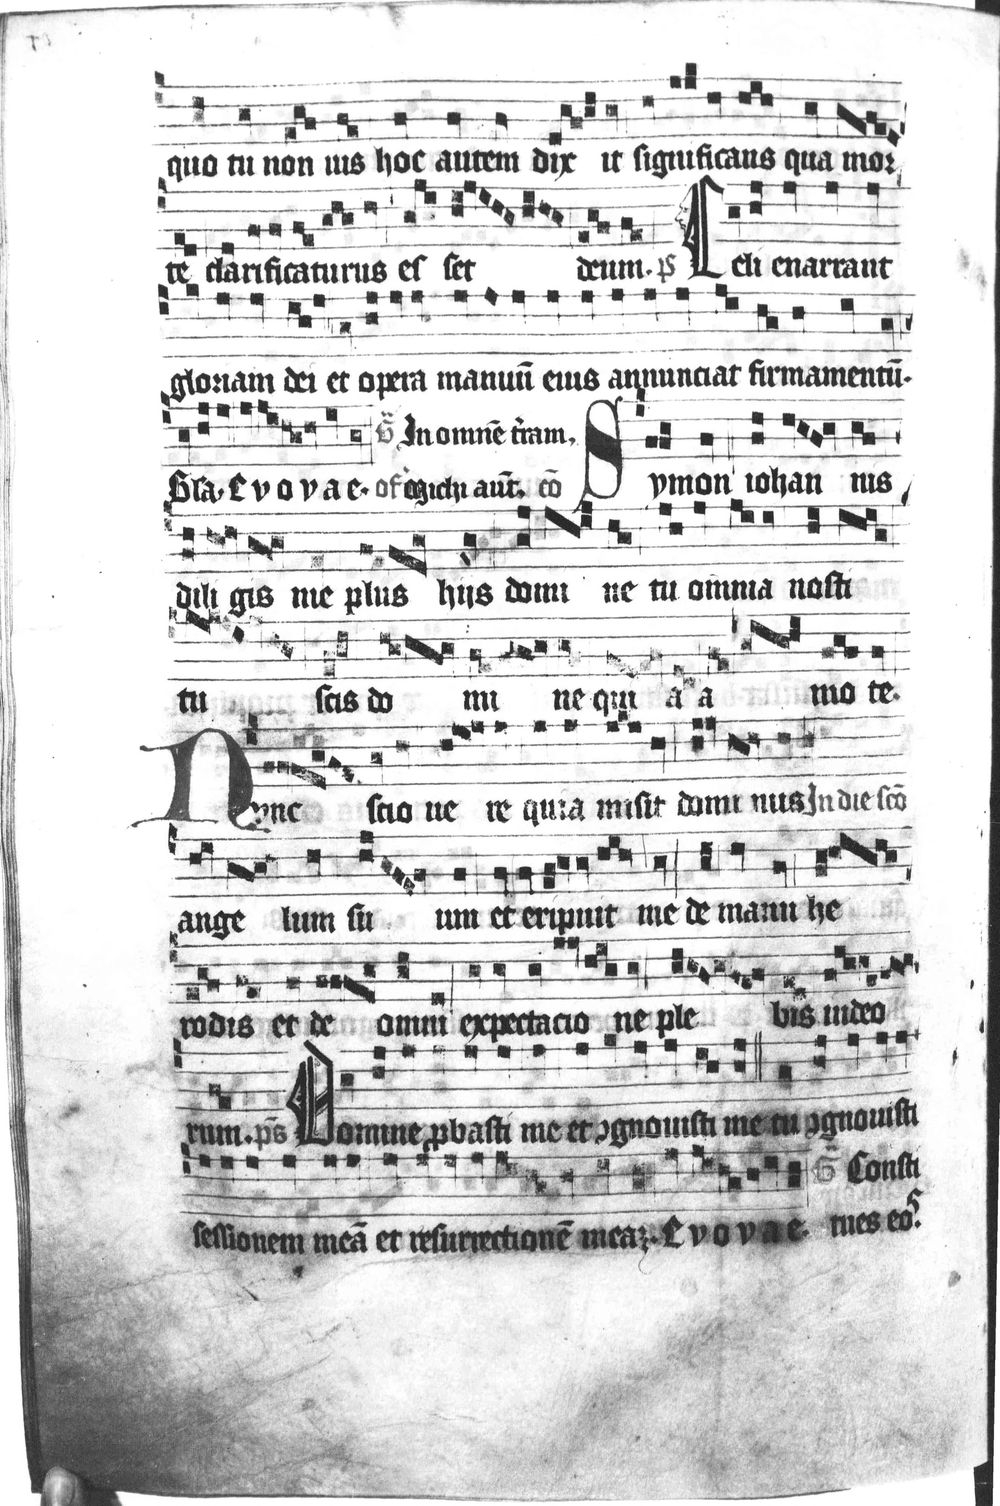 quo tu non uis hoc autem dix it significans qua mor
te clarificaturus es set deum. ps Celi enarrant
gloriam dei et opera manuū eius annunciat firmamentū.
G In omnē t̄ram.
Gl̄a. E v o v a e. of Michi aut̄. cō Symon iohan nis
dili gis me plus hijs domi ne tu omnia nosti
tu scis do mi ne qui a a mo te.
Nync scio ue re quia misit domi nus In die scō
ange lum su um et eripuit me de manu he
rodis et de omni expectacio ne ple bis iudeo
rum. ps Domine ꝓbasti me et ꝯgnouisti me tu ꝯgnouisti
G Consti
sessionem meā et resurrectionē meaꝫ. E v o v a e. tues eos.